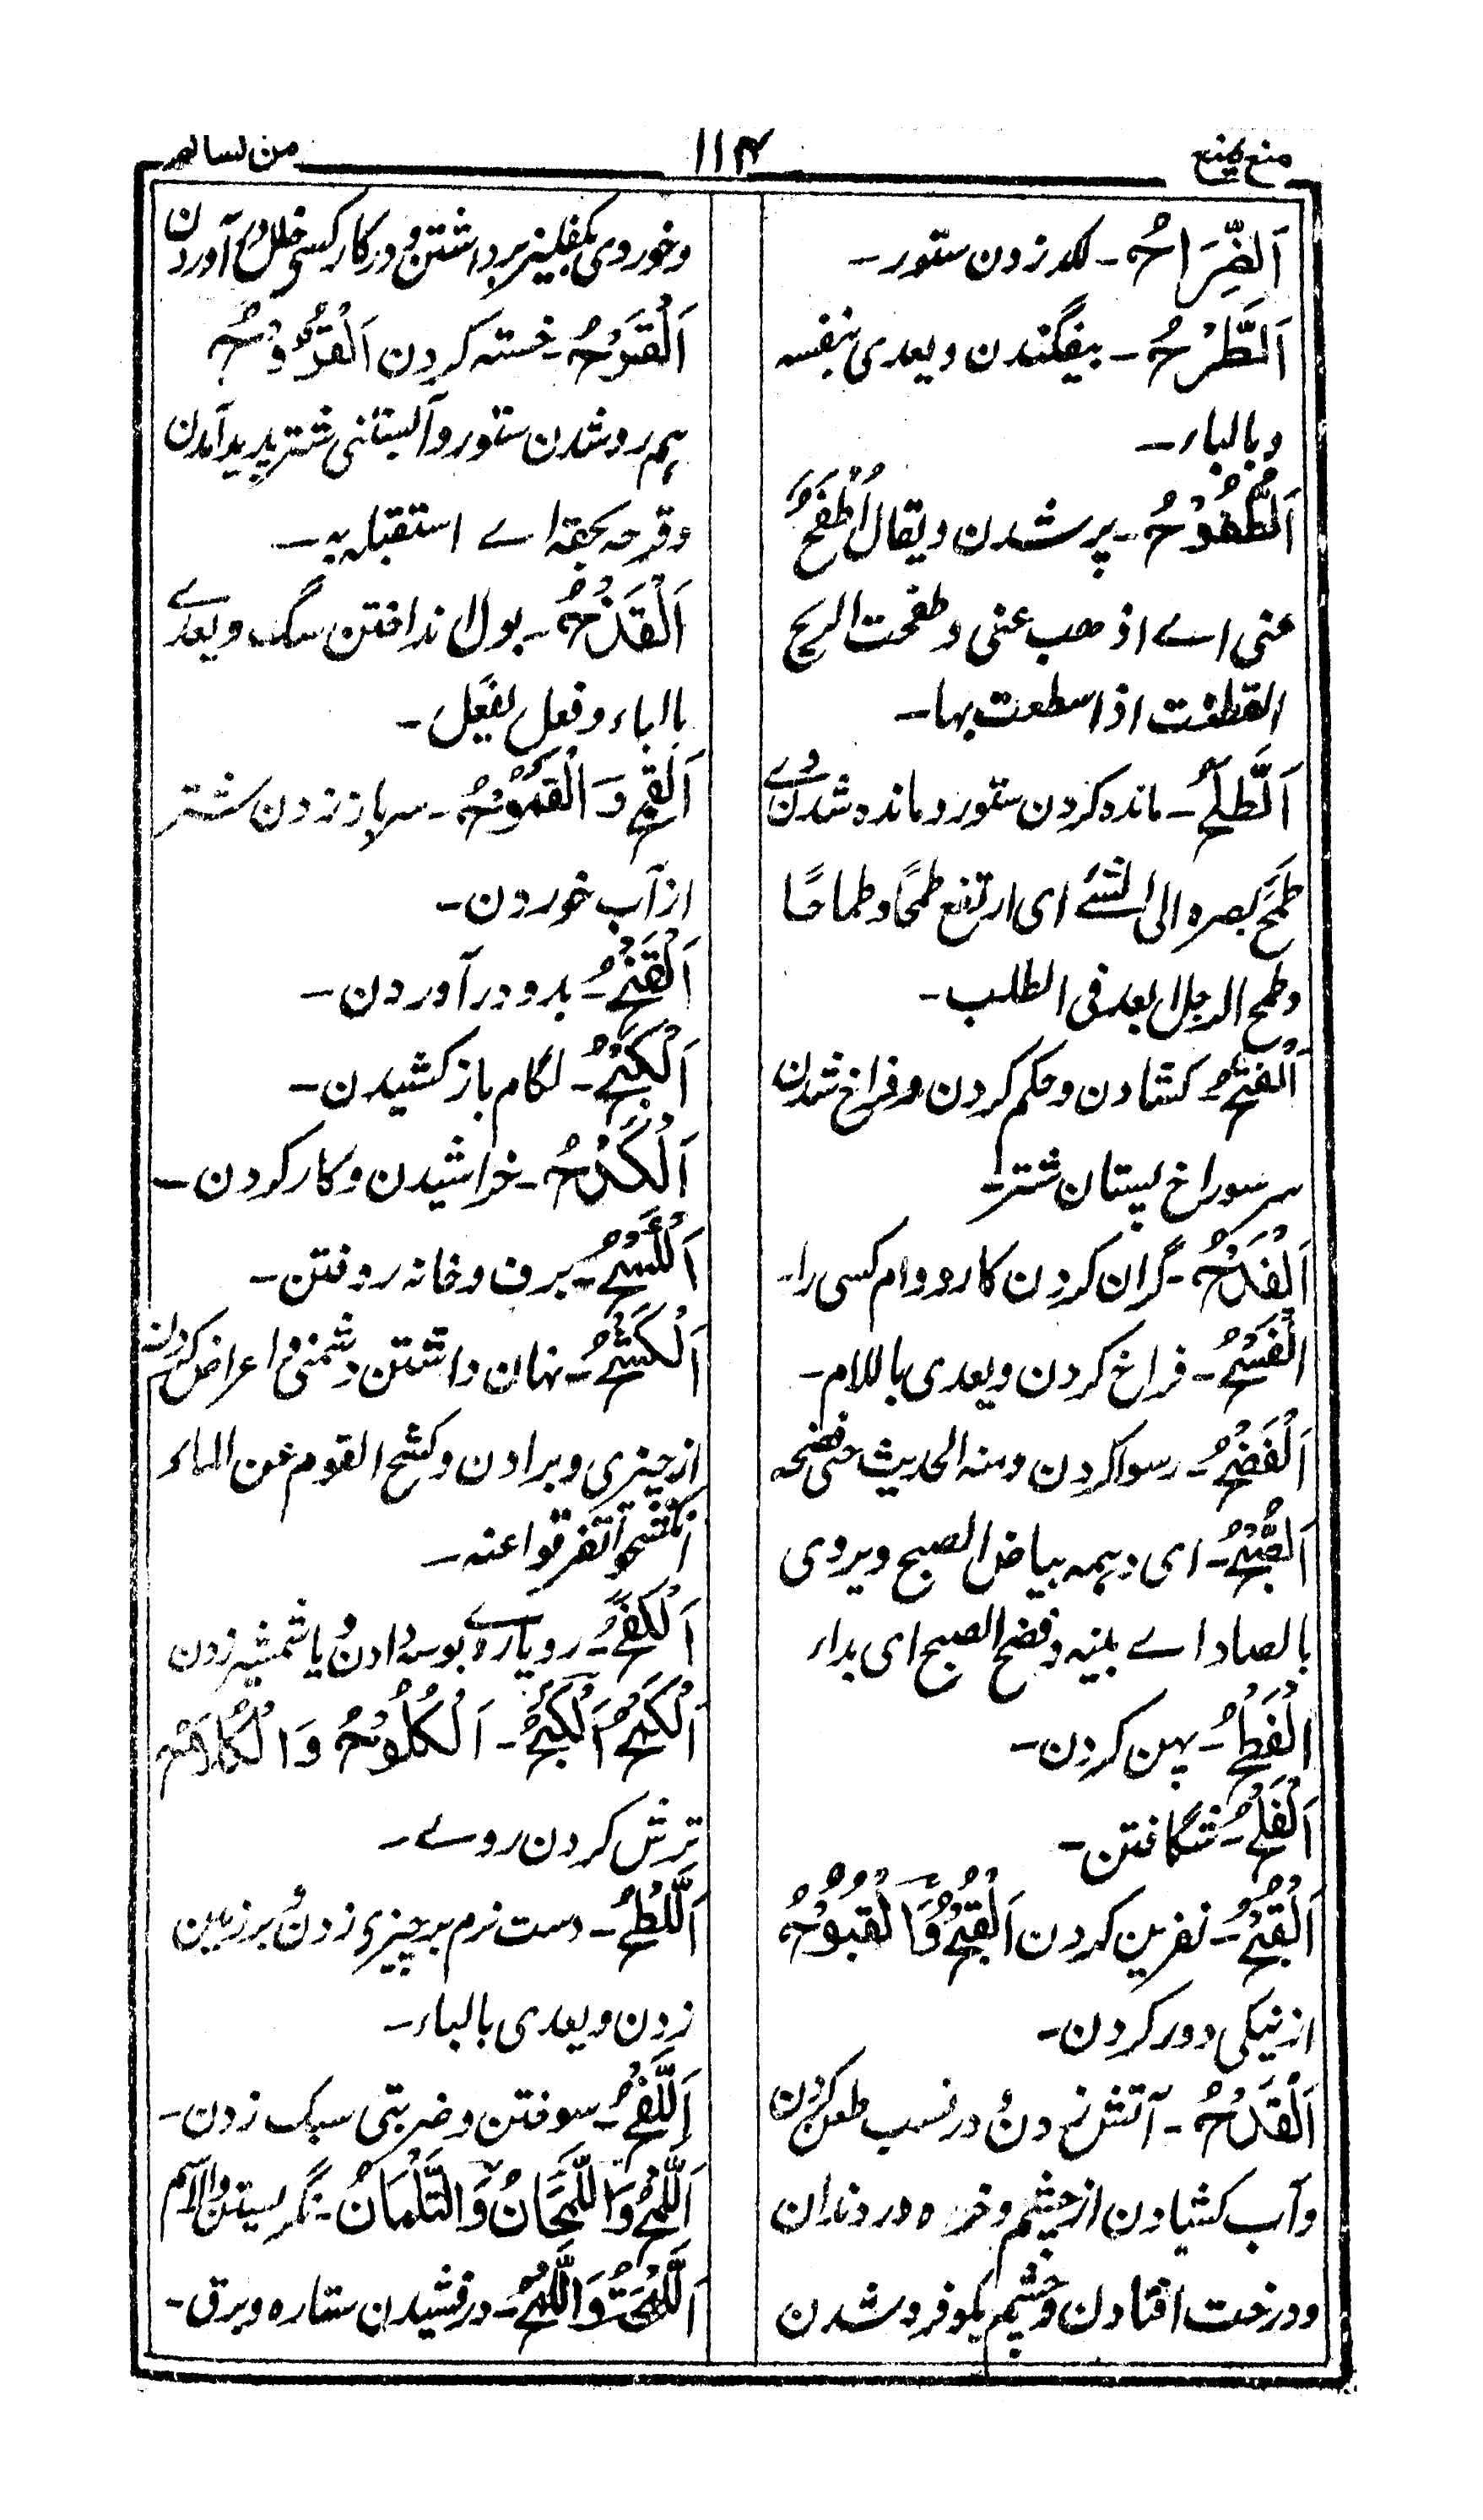 منع یمنع
۱۱۴
من لسالم
اَلضِّرَاحُ ۔ لکد زدن ستور ۔
اَلطَّرْحُ ۔ بیفگندن ویعدی بنفسه
وبالباء ۔
اَلطُّفُوْحُ ۔ پر شدن ویقال اُطْفَحْ
عنی اے اذهب عنی وطفحت الریح
القطنت اذا سطعت بها ۔
اَلطَّلْحُ ۔ مانده کردن ستور ومانده شدن وے
طَمَحَ بصره الی الشئے ای ارتفع طمحًا وطماحًا
وطمح الرجل ابعد فی الطلب ۔
اَلْفَتْحُ کشادن وحکم کردن وفراخ شدن
سر سوراخ پستان شتر ۔
اَلْفَدْحُ ۔ گران کردن کار ووام کسی را ۔
اَلْفَسْحُ ۔ فراخ کردن ویعدی باللام ۔
اَلْفَضْحُ ۔ رسوا کردن ومنه الحدیث حتی فضحه
اَلصُّبْحُ ۔ ای دهمه بیاض الصبح ویروی
بالصاد اے بینه وفضح الصبح ای بداء
اَلْفَطْحُ ۔ پهن کردن ۔
اَلْفَلْحُ ۔ شگافتن ۔
اَلْقُبْحُ ۔ نفرین کردن اَلْقَبْحُ وَالْقُبُوْحُ
از نیکی دور کردن ۔
اَلْقَدْحُ ۔ آتش زدن ودر نسب طعن کردن
وآب کشیادن از چشم وخوره در دندان
ودرخت افتادن وچشم بکو فرو شدن
وخوردی بکفلیز برداشتن ودر کار کسی خلل آوردن
اَلْقَرْحُ ۔ خسته کردن اَلْقُرُوْحُ
هم رو شدن ستور وآبستنی شتر پدید آمدن
وقرحه بحقه اے استقبله به ۔
اَلْقَزْحُ ۔ بول انداختن سگ ویعدے
بالباء وفعل یفعل ۔
اَلْقَمْحُ وَالْقُمُوْحُ ۔ سر باز زدن شتر
از آب خوردن ۔
اَلْقَنْحُ ۔ بدو در آوردن ۔
اَلْکَبْحُ ۔ لگام باز کشیدن ۔
اَلْکَدْحُ ۔ خراشیدن وکار کردن ۔
اَلْکَسْحُ ۔ برف وخانه روفتن ۔
اَلْکَشْحُ ۔ نهان داشتن دشمنی واعراض کردن
از چیزی وبرادن وکشح القوم عن الماء
انکشحوا تفرقوا عنه ۔
اَلْکَفْحُ ۔ رویارے بوسه دادن ویا شمشیر زدن
اَلْکَمْحُ اَلْکَبْحُ ۔ اَلْکُلُوْحُ وَالْکُلَاحُ
ترش کردن روے ۔
اَللَّطْحُ ۔ دست نرم بر چیزی زدن وبر زمین
زدن ویعدی بالباء ۔
اَللَّفْحُ ۔ سوختن وضربتی سبک زدن ۔
اَللَّمْحُ وَاللَّمَحَانُ وَالتَّلْمَاحُ ۔ نگریستن والاسم
اَللَّمْحَةُ وَاللَّمْحُ ۔ درفشیدن ستاره وبرق ۔